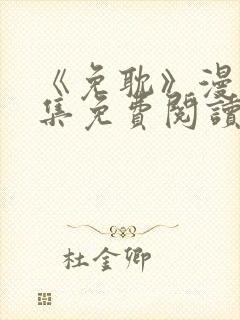 《免耽》漫
集免費閱讀
杜金卿